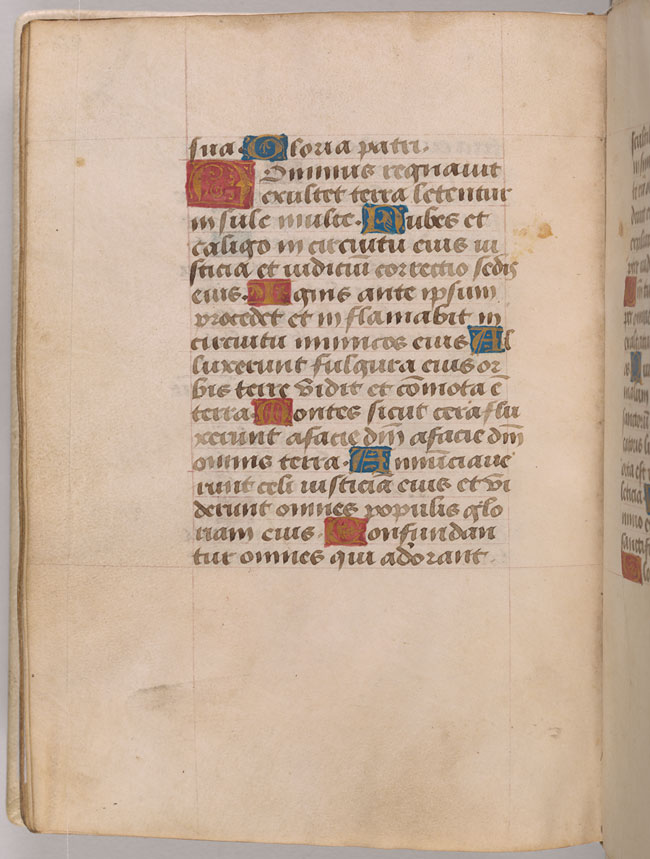 sua. Gloria patri.
Dominus regnavit
exultet terra letentur
insule multe. Nubes et
caligo in circuitu eius iu
sticia et iudiciũ correctio sedis
eius. Ignis ante ipsum
procedet et inflamabit in
circuitu inimicos eius Al
luxerunt fulgura eius or
bis terre vidit et cõmota ẽ
terra. Montes sicut cera flu
xerunt afacie dñi afacie dñi
omnis terra. Annunciave
runt celi iusticiã eius et vi
derunt omnes populis glo
riam eius. Confundan
tur omnes qui adorant